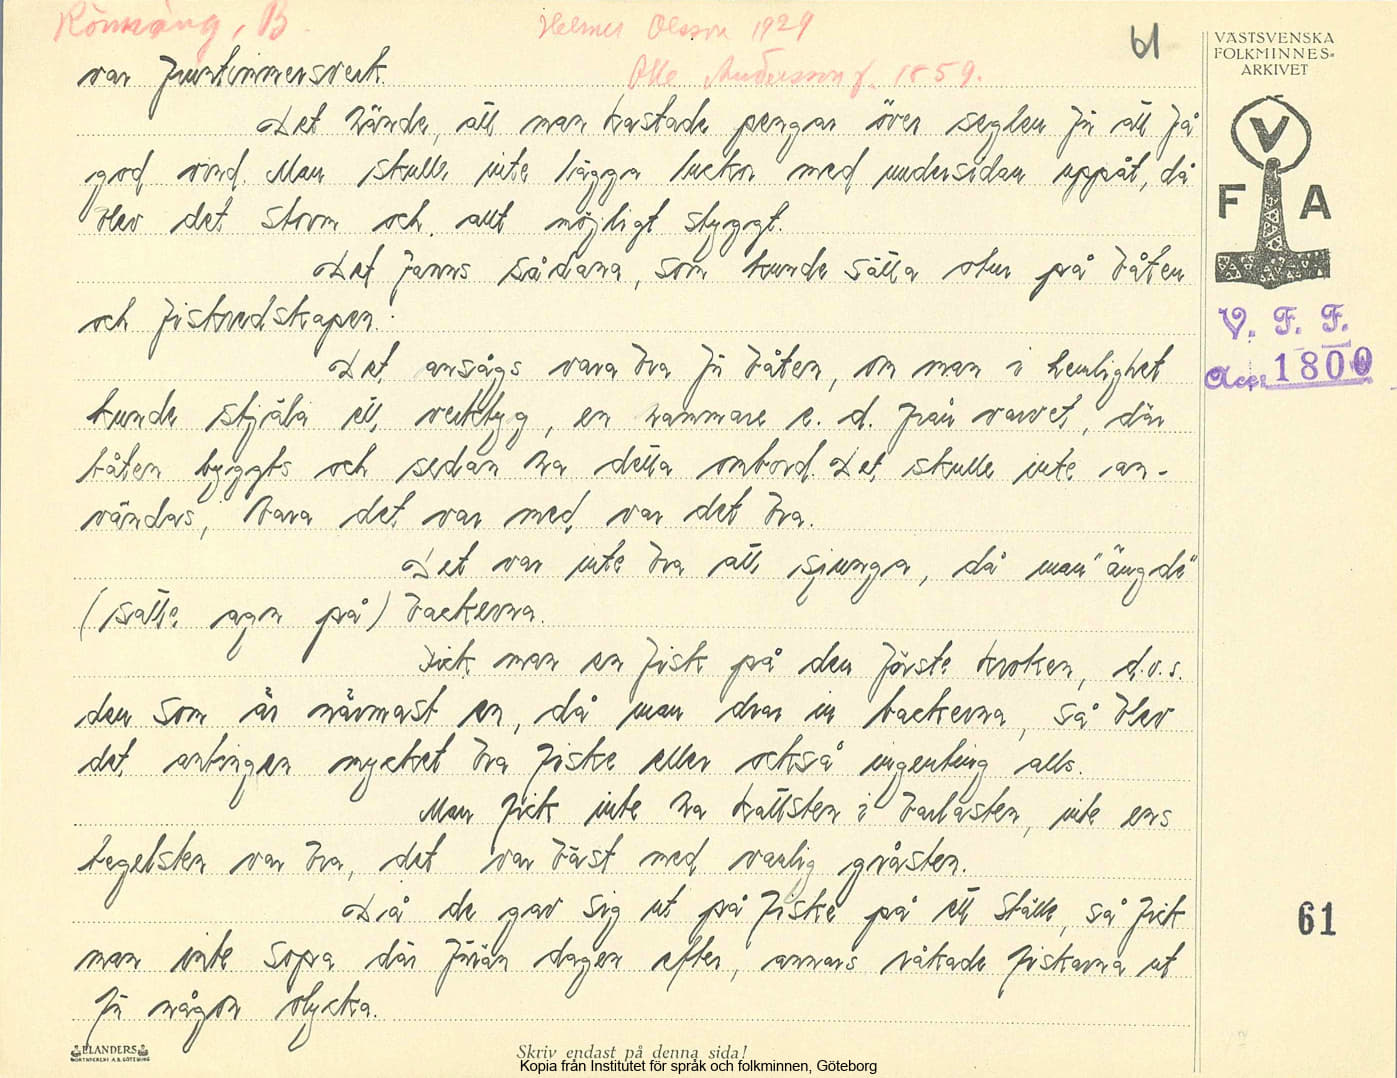 Rönnäng, B
Helmer Olsson 1929
61
Olle Andersson f. 1859.
VÄSTSVENSKA
FOLKMINNES-
ARKIVET
V
F A
V. F. F.
Acc. 1800
var furutimmersverk.
Det hände, att man kastade pengar över seglen för att få
god vind. Man skulle inte lägga luckor med undersidan uppåt, då
blev det storm och allt möjligt styggt.
Det fanns sådana, som kunde sätta otur på båten
och fiskredskapen.
Det ansågs vara bra för båten, om man i hemlighet
kunde stjäla ett verktyg, en hammare e. d. från varvet, där
båten byggts och sedan ha detta ombord. Det skulle inte an-
vändas, bara det var med, var det bra.
Det var inte bra att sjunga, då man "ängde"
(satte agn på) backorna.
Fick man en fisk på den första kroken, d.v.s.
den som är närmast en, då man drar in backorna, så blev
det antingen mycket bra fiske eller också ingenting alls.
Man fick inte ha kattsten i barlasten, inte ens
tegelsten var bra, det var bäst med vanlig gråsten.
Då de gav sig ut på fiske på ett ställe, så fick
man inte sopa där förrän dagen efter, annars råkade fiskarna ut
för någon olycka.
61
ELANDERS
Skriv endast på denna sida!
Kopia från Institutet för språk och folkminnen, Göteborg